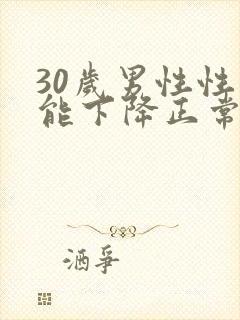 30歲男性性
能下降正常
酒爭